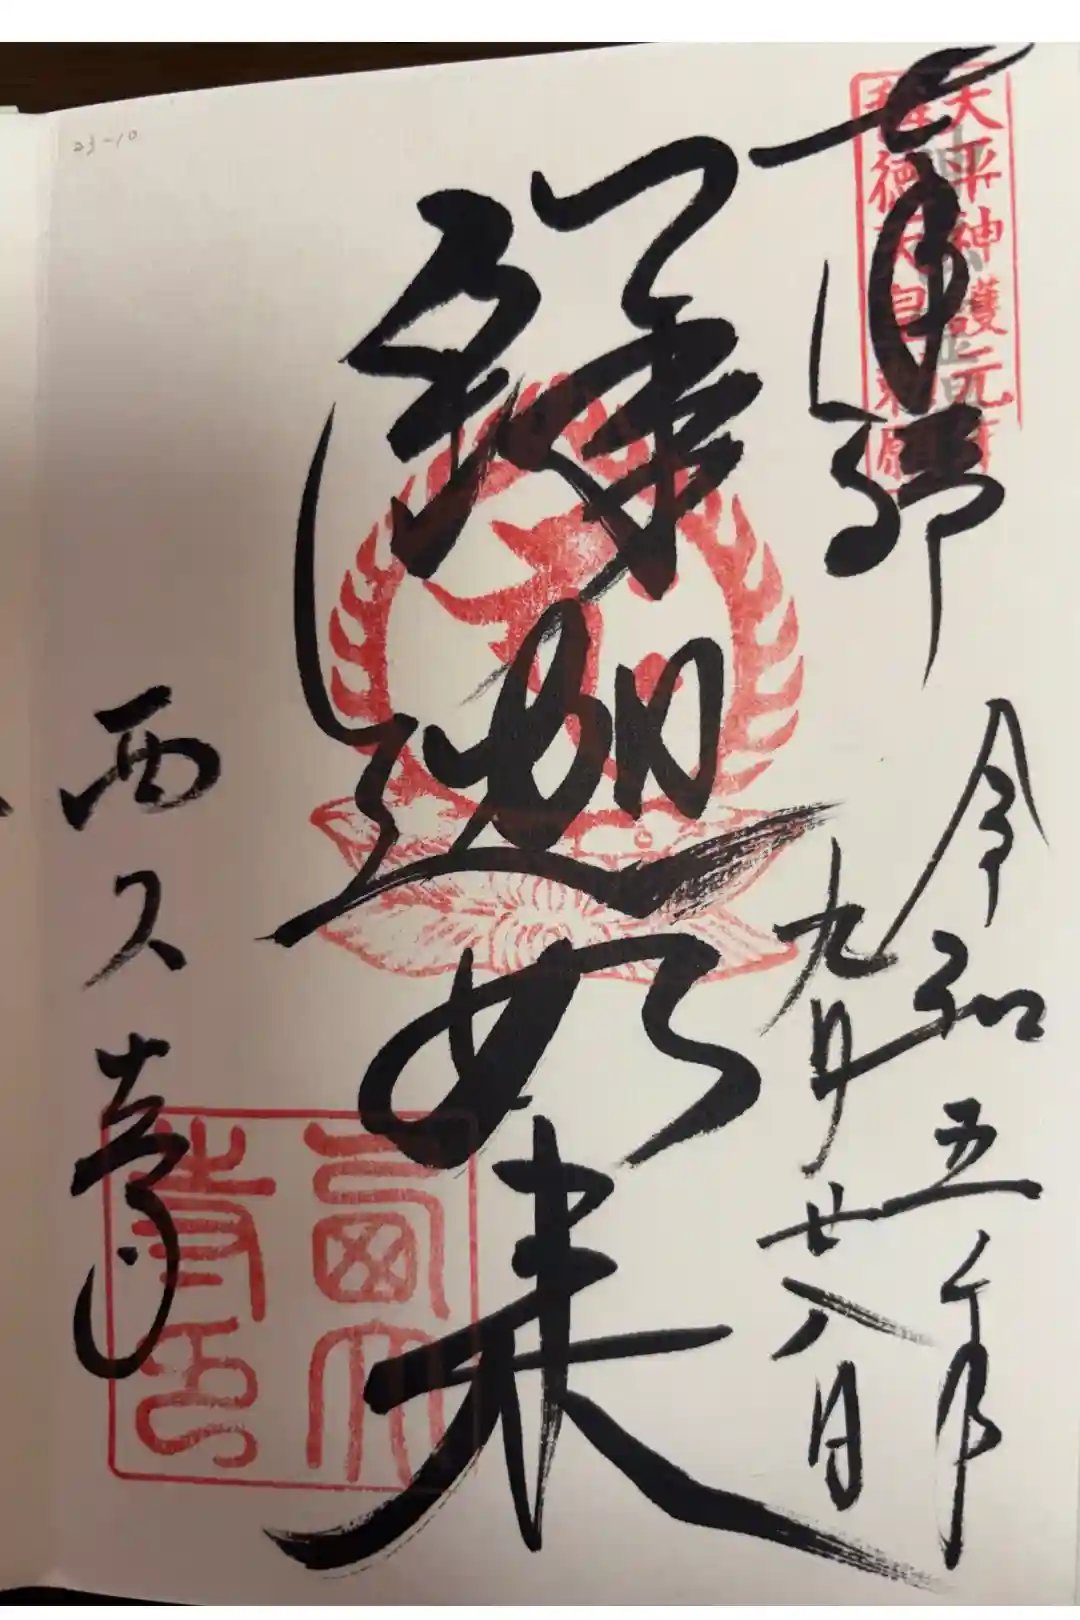 23-10
天平神護元年
稱徳天皇勅願
釋迦如来
令和五年
九月廿八日
西大寺
西大寺印